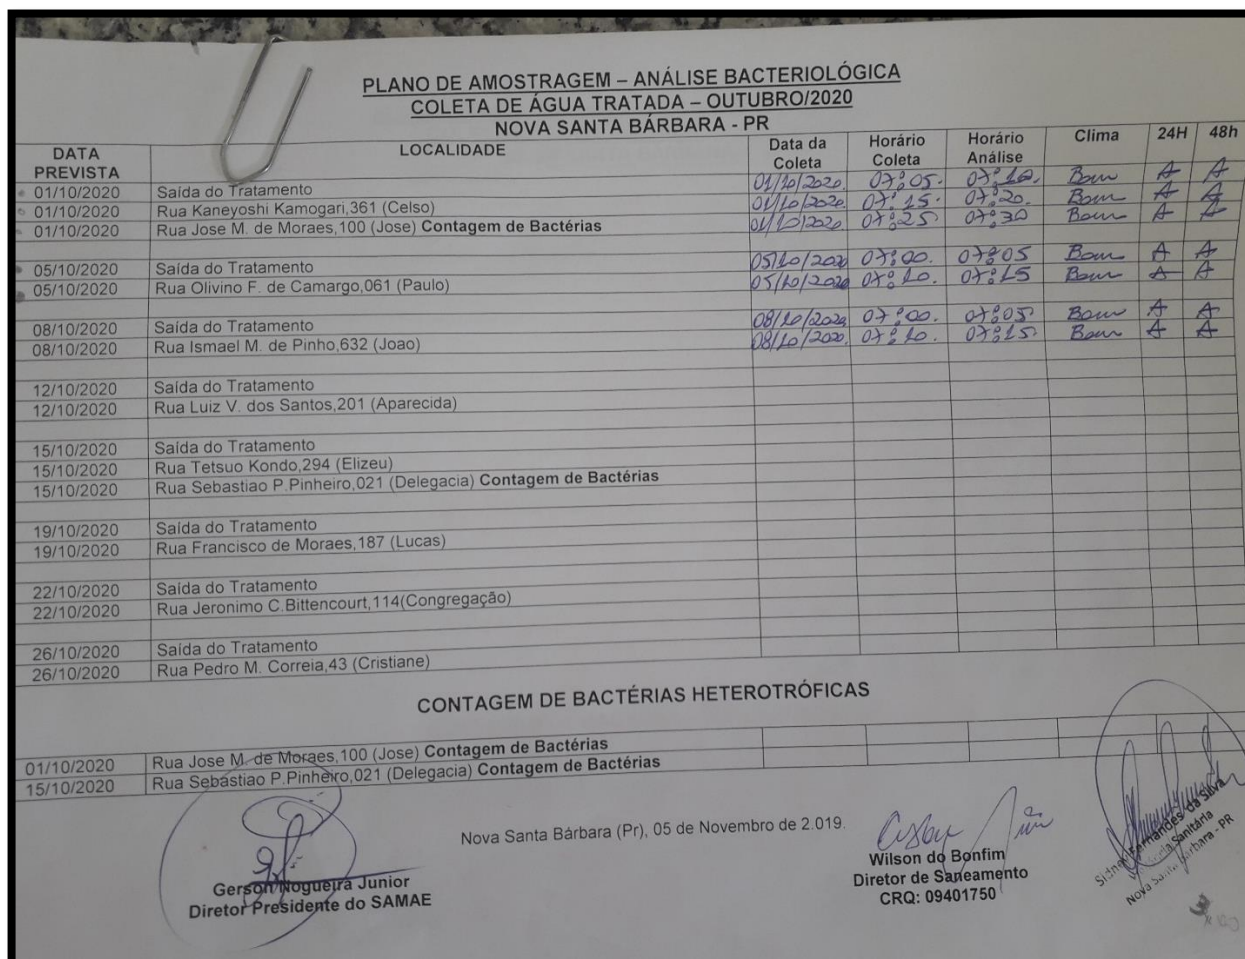 PLANO DE AMOSTRAGEM – ANÁLISE BACTERIOLÓGICA
COLETA DE ÁGUA TRATADA – OUTUBRO/2020
NOVA SANTA BÁRBARA - PR
DATA PREVISTA LOCALIDADE Data da Coleta Horário Coleta Horário Análise Clima 24H 48h
01/10/2020 Saída do Tratamento 01/10/2020. 07:05. 07:10. Bom A A
01/10/2020 Rua Kaneyoshi Kamogari,361 (Celso) 01/10/2020. 07:15. 07:20. Bom A A
01/10/2020 Rua Jose M. de Moraes,100 (Jose) Contagem de Bactérias 01/10/2020 07:25 07:30 Bom A A
05/10/2020 Saída do Tratamento 05/10/2020 07:00. 07:05 Bom A A
05/10/2020 Rua Olivino F. de Camargo,061 (Paulo) 05/10/2020 07:10. 07:15 Bom A A
08/10/2020 Saída do Tratamento 08/10/2020 07:00. 07:05 Bom A A
08/10/2020 Rua Ismael M. de Pinho,632 (Joao) 08/10/2020. 07:10. 07:15 Bom A A
12/10/2020 Saída do Tratamento
12/10/2020 Rua Luiz V. dos Santos,201 (Aparecida)
15/10/2020 Saída do Tratamento
15/10/2020 Rua Tetsuo Kondo,294 (Elizeu)
15/10/2020 Rua Sebastiao P.Pinheiro,021 (Delegacia) Contagem de Bactérias
19/10/2020 Saída do Tratamento
19/10/2020 Rua Francisco de Moraes,187 (Lucas)
22/10/2020 Saída do Tratamento
22/10/2020 Rua Jeronimo C.Bittencourt,114(Congregação)
26/10/2020 Saída do Tratamento
26/10/2020 Rua Pedro M. Correia,43 (Cristiane)
CONTAGEM DE BACTÉRIAS HETEROTRÓFICAS
01/10/2020 Rua Jose M. de Moraes,100 (Jose) Contagem de Bactérias
15/10/2020 Rua Sebastiao P.Pinheiro,021 (Delegacia) Contagem de Bactérias
Nova Santa Bárbara (Pr), 05 de Novembro de 2.019.
Gerson Nogueira Junior
Diretor Presidente do SAMAE
Wilson do Bonfim
Diretor de Saneamento
CRQ: 09401750
Sidnei Fernandes da Silva
Sanitária
Nova Santa Bárbara - PR